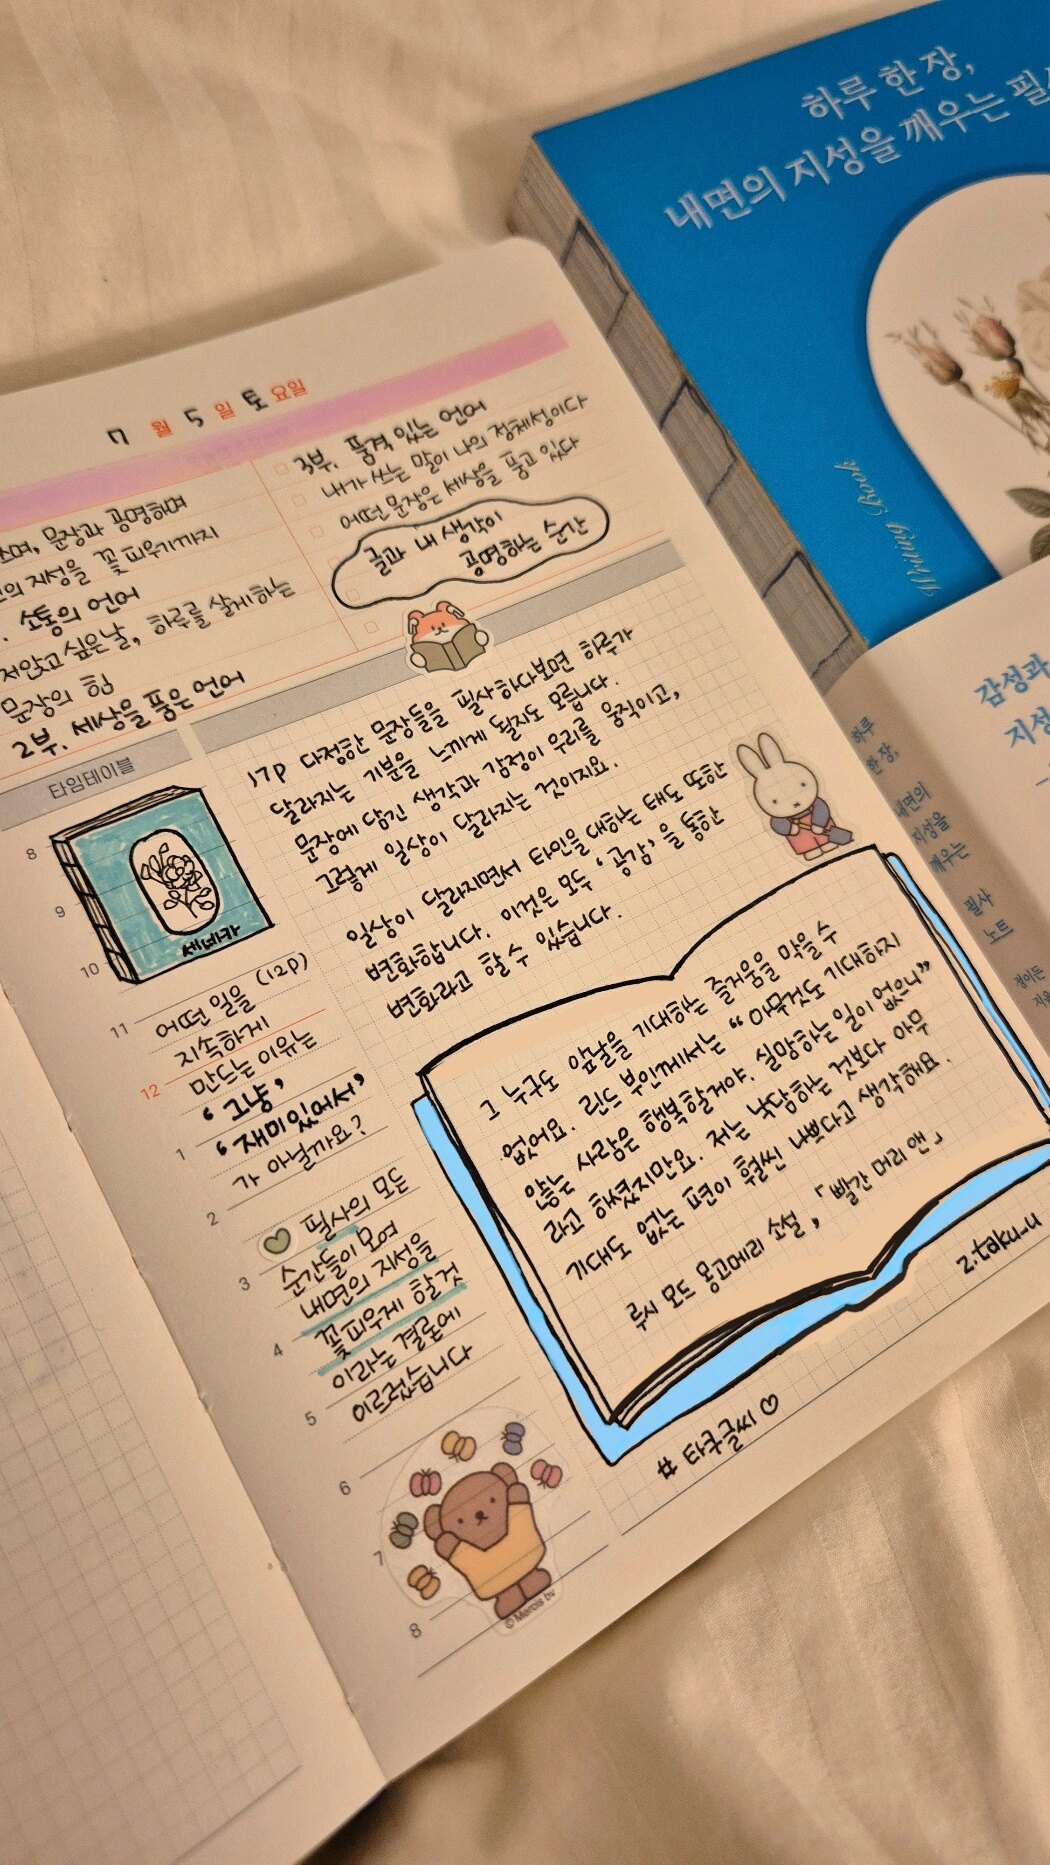 하루 한 장,
내면의 지성을 깨우는 필사
Writing Book
7월 5일 토요일
문장과 공명하며
지성을 꽃 피우기까지
소통의 언어
주저앉고 싶은 날, 하루를 살게 하는
문장의 힘
2부. 세상을 품은 언어
3부. 품격 있는 언어
내가 쓰는 말이 나의 정체성이다
어떤 문장은 세상을 품고 있다
글과 내 생각이
공명하는 순간
타임테이블
8
9
10
11
12
1
2
3
4
5
6
7
8
세네카
어떤 일을 (12p)
지속하게
만드는 이유는
‘그냥’
‘재미있어서’
가 아닐까요?
필사의 모든
순간들이 모여
내면의 지성을
꽃피우게 할 것
이라는 결론에
이르렀습니다
© Mercis bv
17p 다정한 문장들을 필사하다보면 하루가
달라지는 기분을 느끼게 될지도 모릅니다.
문장에 담긴 생각과 감정이 우리를 움직이고,
그렇게 일상이 달라지는 것이지요.
일상이 달라지면서 타인을 대하는 태도 또한
변화합니다. 이것은 모두 ‘공감’을 통한
변화라고 할 수 있습니다.
그 누구도 앞날을 기대하는 즐거움을 막을 수
없어요. 린드 부인께서는 “아무것도 기대하지
않는 사람은 행복할거야. 실망하는 일이 없으니”
라고 하셨지만요. 저는 낙담하는 것보다 아무
기대도 없는 편이 훨씬 나쁘다고 생각해요.
루시 모드 몽고메리 소설, 「빨간 머리 앤」
# 타쿠글씨 ♡
감성과
지성
하루
한 장,
내면의
지성을
깨우는
필사
노트